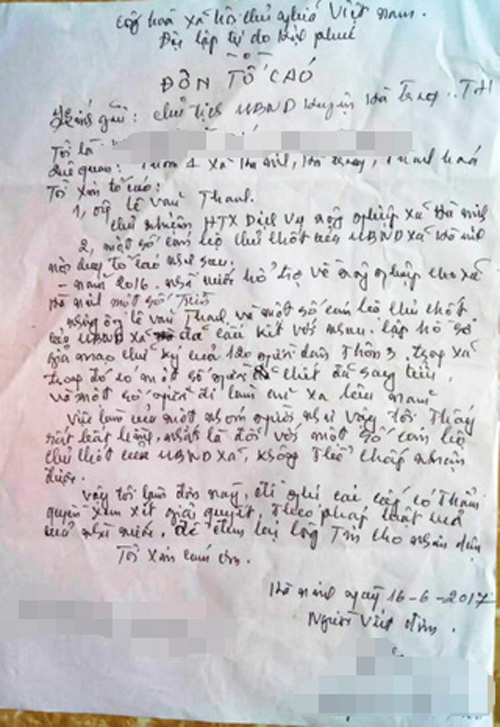 Cộng hoà xã hội chủ nghĩa Việt Nam.
Độc lập tự do hạnh phúc
ĐƠN TỐ CÁO
Kính gửi: chủ tịch UBND huyện Hà Trung. TH
Tôi là
Quê quán: Thôn 4 xã Hà Ninh, Hà Trung, Thanh Hoá
Tôi xin tố cáo:
1, ông Lê Văn Thanh.
chủ nhiệm HTX Dịch vụ nông nghiệp xã Hà Ninh
2, một số cán bộ chủ chốt của UBND xã Hà Ninh
nội dung tố cáo như sau.
- năm 2016. nhà nước hỗ trợ về nông nghiệp cho xã
Hà Ninh một số tiền
nhưng ông Lê Văn Thanh và một số cán bộ chủ chốt
UBND xã đã cấu kết với nhau. lập hồ sơ
giả mạo chữ ký của người dân Thôn 3, trong xã
trong đó có một số người chết đã
và một số người đi làm xa nhiều năm
Việc làm của một nhóm người như vậy tôi Thấy
rất bất bình, nhất là đối với một số cán bộ
chủ chốt của UBND xã, không Thể chấp nhận
được.
Vậy tôi làm đơn này, đề nghị các cấp có Thẩm
quyền xem xét giải quyết, Theo pháp luật
của nhà nước, để đem lại lòng Tin cho nhân dân
Tôi xin cảm ơn.
Hà Ninh ngày 16-6-2017
Người viết đơn.